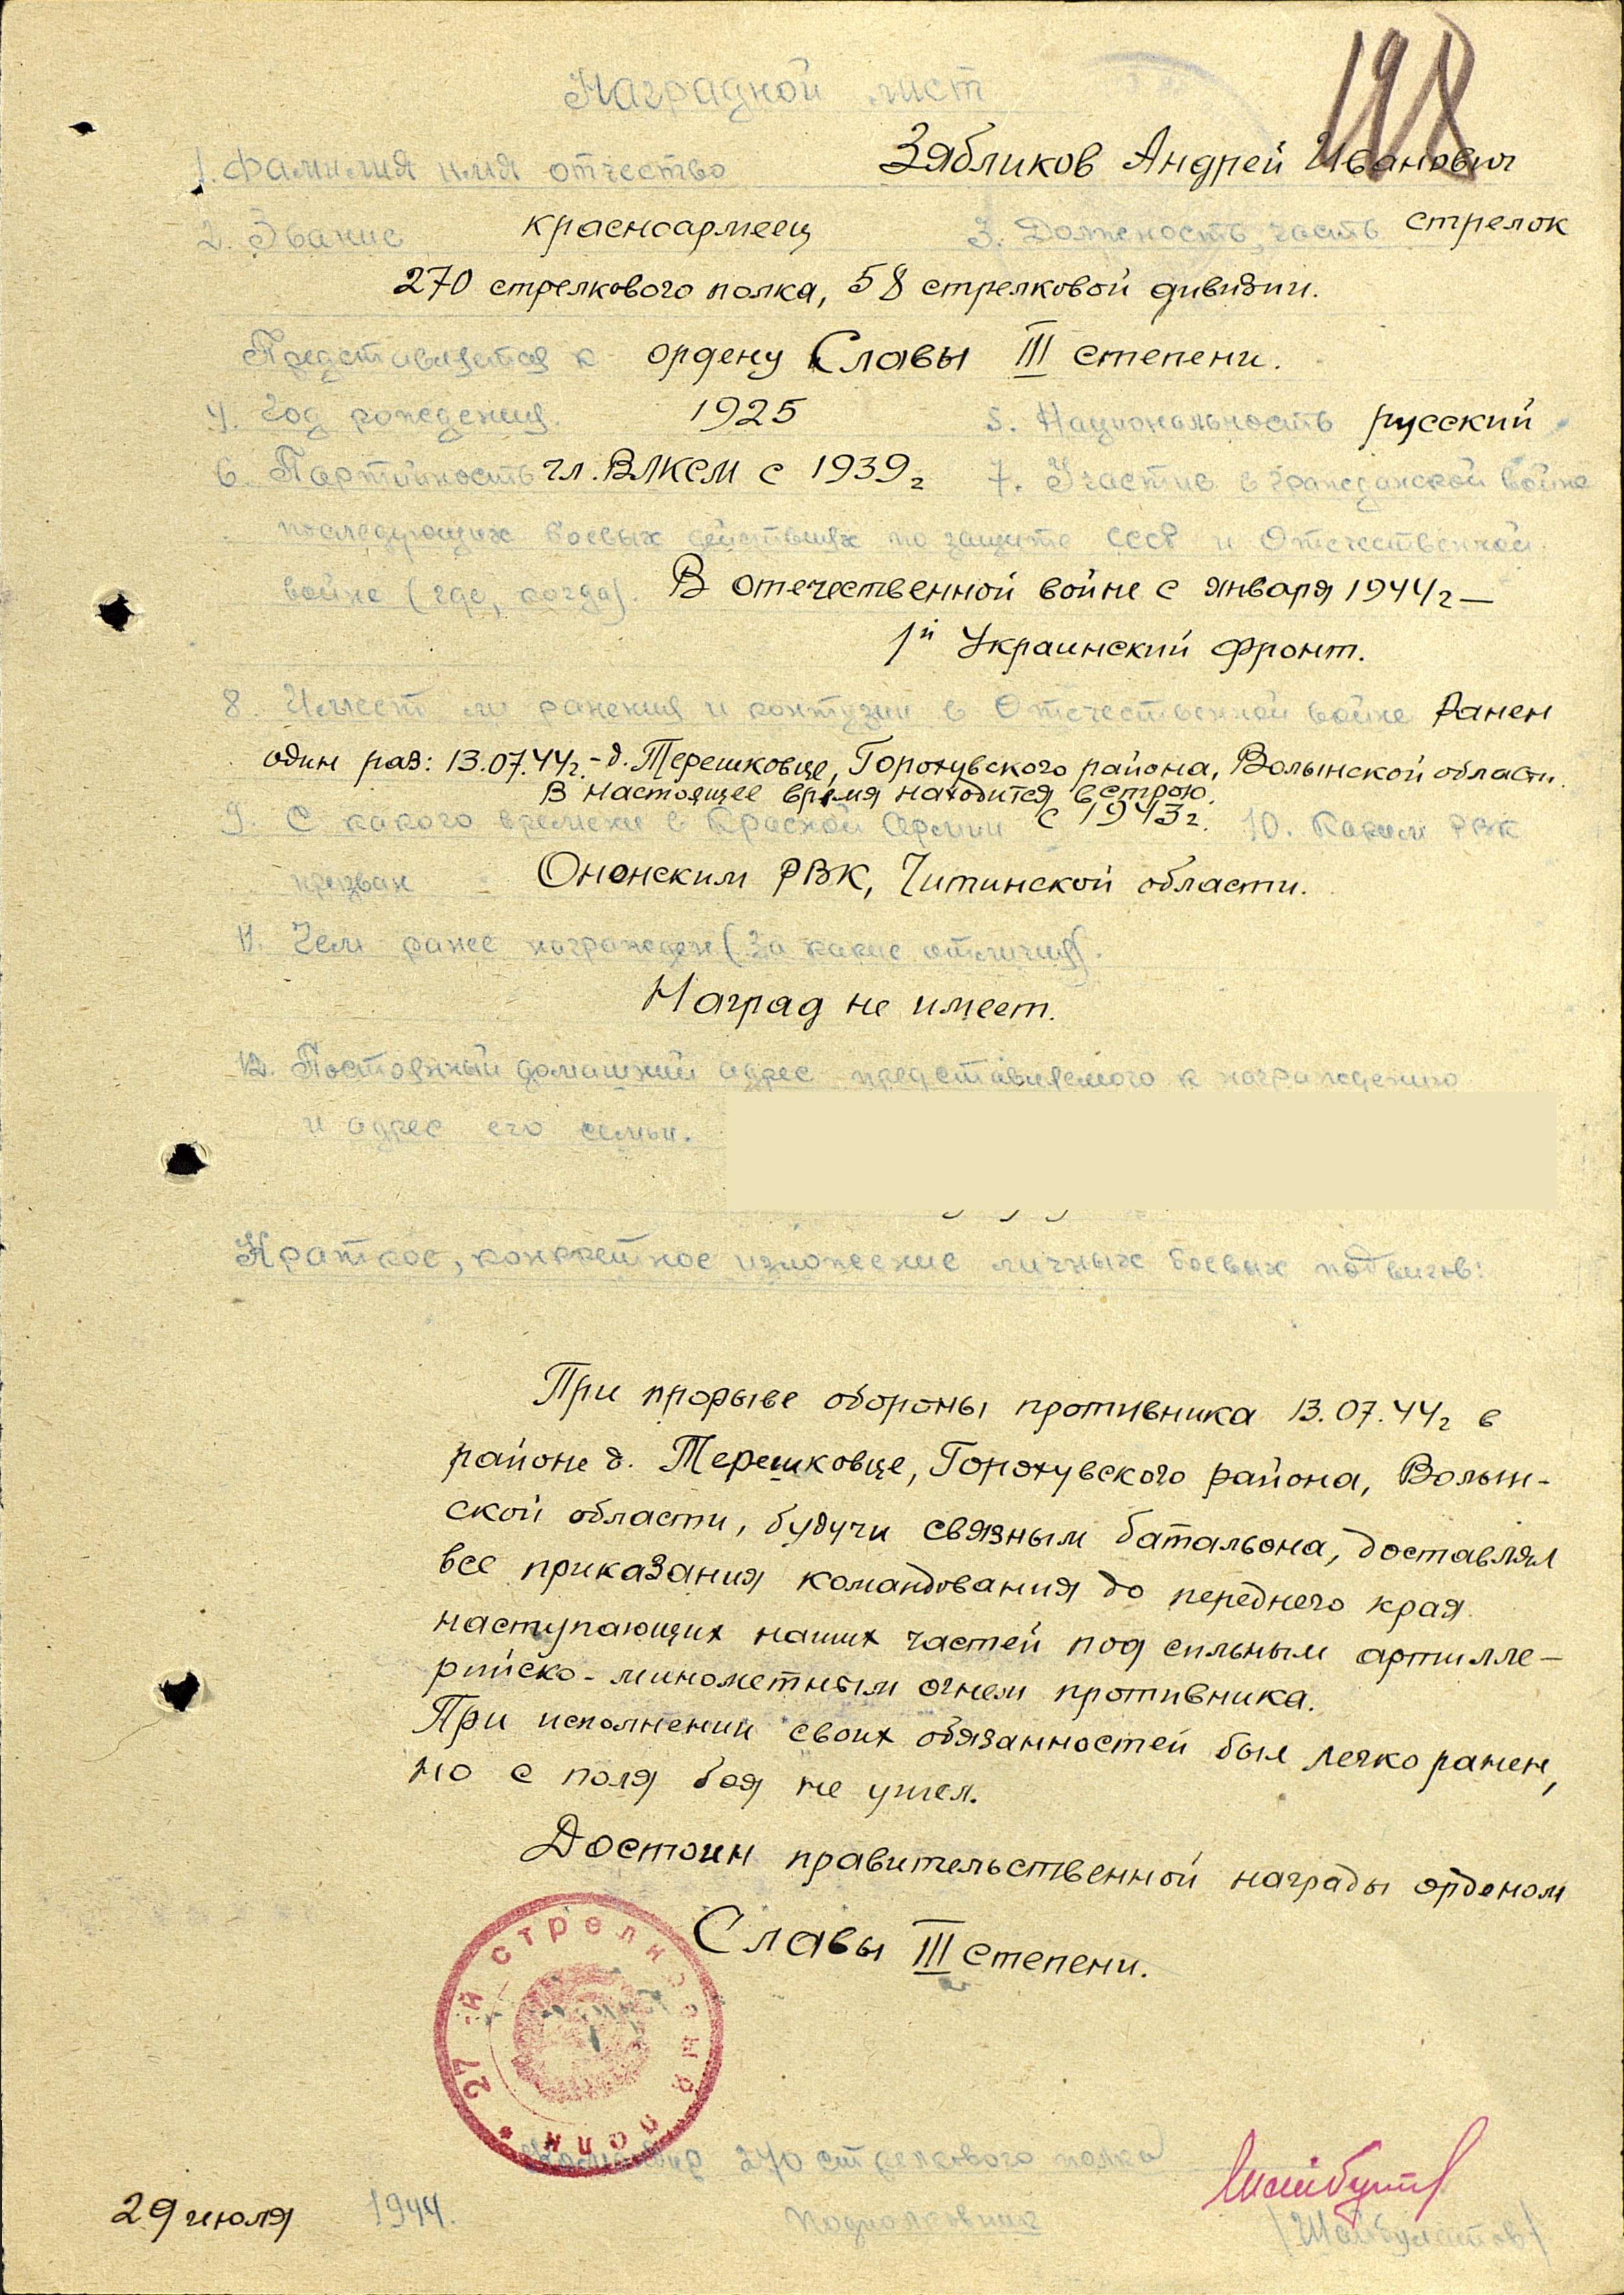 198
Наградной лист
1. Фамилия имя отчество Зябликов Андрей Иванович
2. Звание красноармеец 3. Должность, часть стрелок
270 стрелкового полка, 58 стрелковой дивизии.
Представляется к ордену Славы III степени.
4. Год рождения 1925 5. Национальность русский
6. Партийность чл. ВЛКСМ с 1939г 7. Участие в гражданской войне
последующих боевых действиях по защите СССР и Отечественной
войне (где, когда). В отечественной войне с января 1944г –
1й Украинский фронт.
8. Имеет ли ранения и контузии в Отечественной войне Ранен
один раз: 13.07.44г. – д. Терешковце, Горохувского района, Волынской области.
В настоящее время находится в строю.
9. С какого времени в Красной Армии с 1943г. 10. Каким РВК
призван Ононским РВК, Читинской области.
11. Чем ранее награжден (За какие отличия).
Наград не имеет.
12. Постоянный домашний адрес представляемого к награждению
и адрес его семьи.
Краткое, конкретное изложение личных боевых подвигов:
При прорыве обороны противника 13.07.44г в
районе д. Терешковце, Горохувского района, Волын-
ской области, будучи связным батальона, доставлял
все приказания командования до переднего края
наступающих наших частей под сильным артилле-
рийско-минометным огнем противника.
При исполнении своих обязанностей был легко ранен,
но с поля боя не ушел.
Достоин правительственной награды орденом
Славы III степени.
27 й стрелковый полк
Командир 270 стрелкового полка
29 июля 1944. подполковник
/Шайбулатов/